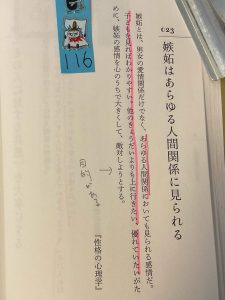 023
嫉妬はあらゆる人間関係に見られる
嫉妬とは、男女の愛情関係だけでなく、あらゆる人間関係においても見られる感情だ。
子どもを見ればわかりやすい。他のきょうだいよりも上に行きたい、優れていたいがた
めに、嫉妬の感情を心のうちで大きくして、敵対しようとする。
『性格の心理学』
116